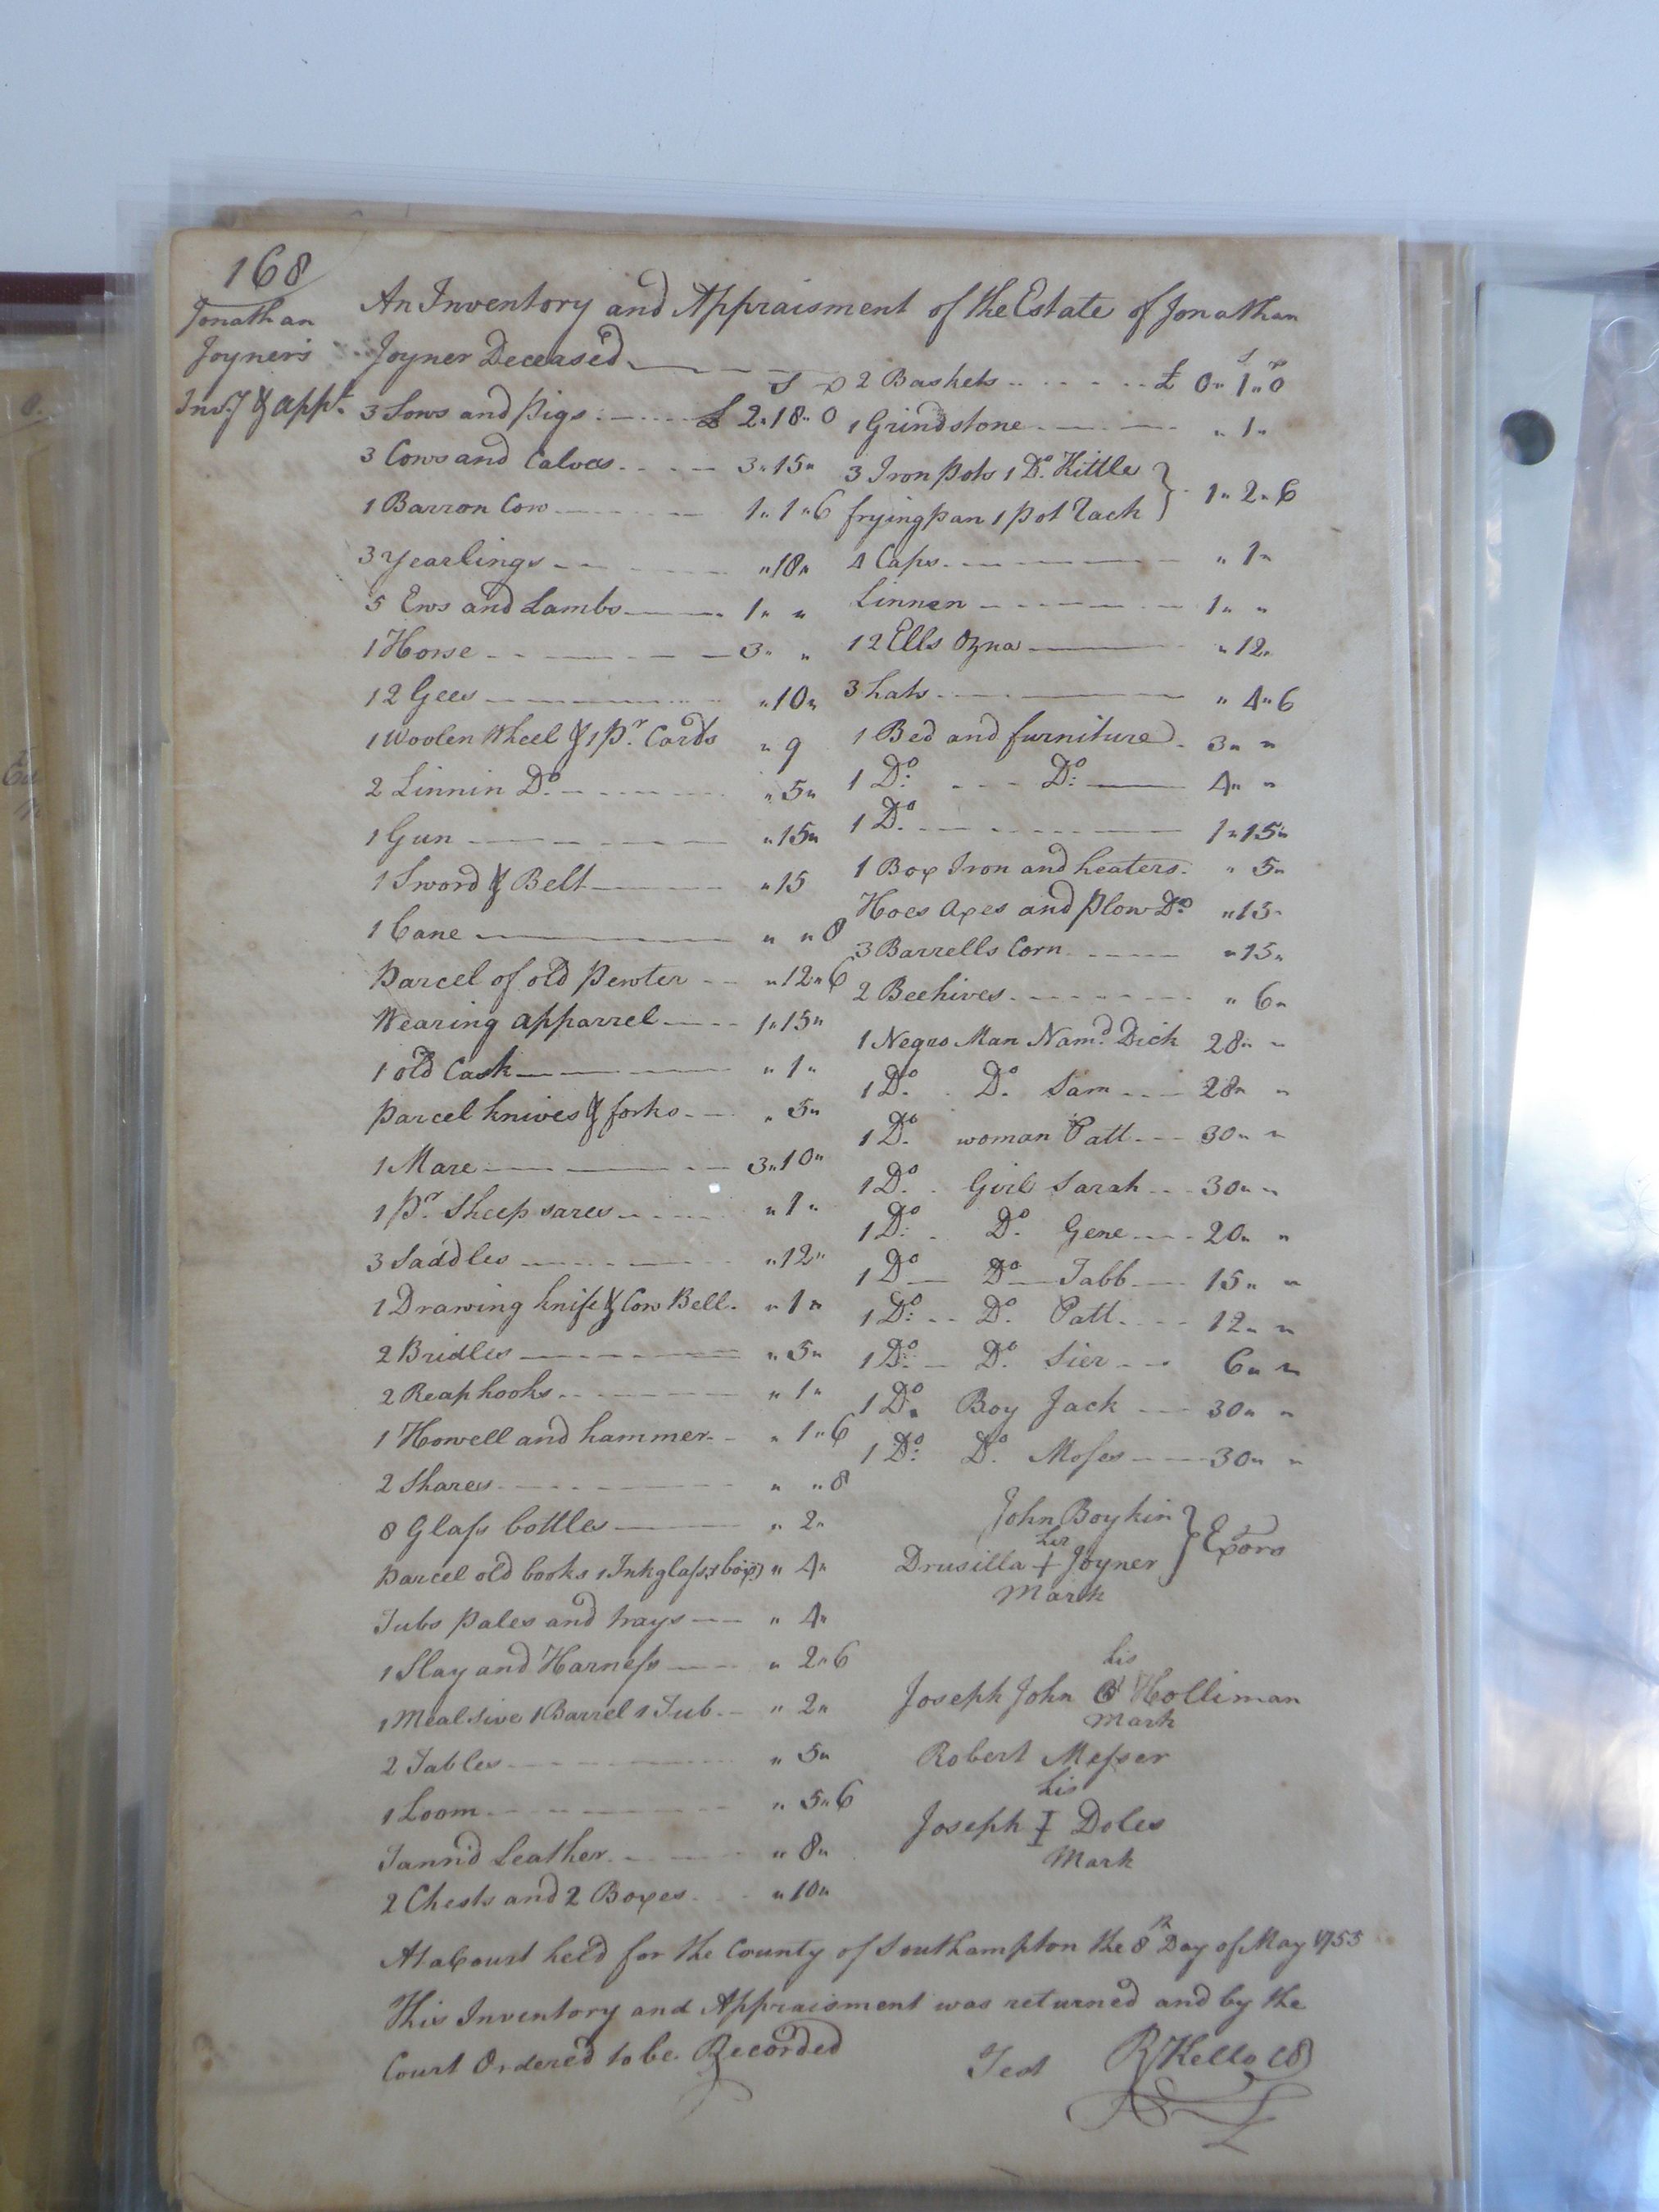 168
Jonathan
Joyner's
Inv.y & appt.
An Inventory and Appraisment of the Estate of Jonathan
Joyner Deceased
S D
3 Sows and Pigs £ 2"18"0
3 Cows and Calves 3"15"
1 Barron Cow 1"1"6
3 yearlings "18"
5 Ews and Lambs 1" "
1 Horse 3" "
12 Gees "10"
1 Woolen Wheel & 1 Pr. Cards "9
2 Linnin Do. "5"
1 Gun "15"
1 Sword & Belt "15
1 Cane " "8
Parcel of old Pewter "12"6
Wearing apparrel 1"15"
1 old Cask "1"
Parcel knives & forks "5"
1 Mare 3"10"
1 Pr. Sheep sares "1"
3 Saddles "12"
1 Drawing knife & Cow Bell "1"
2 Bridles "5"
2 Reaphooks "1"
1 Howell and hammer "1"6
2 Shares " "8
8 Glass bottles "2"
Parcel old books 1 Inkglass 1 box "4"
Tubs Pales and trays "4"
1 Slay and Harness "2"6
1 Meal sive 1 Barrel 1 Tub "2"
2 Tables "5"
1 Loom "5"6
Tann'd Leather "8"
2 Chests and 2 Boxes "10"
S D
2 Baskets £ 0"1"0
1 Grindstone "1"
3 Iron Pots 1 Do. Kittle
fryingpan 1 Pot Rack } 1"2"6
4 Caps "1"
Linnen 1" "
12 Ells Ozna "12"
3 hats "4"6
1 Bed and furniture 3" "
1 Do. Do. 4" "
1 Do. 1"15"
1 Box Iron and heaters "5"
Hoes Axes and Plow Do. "15"
3 Barrells Corn "15"
2 Beehives "6"
1 Negro Man Nam.d Dick 28" "
1 Do. Do. Sam 28" "
1 Do. woman Patt 30" "
1 Do. Girl Sarah 30" "
1 Do. Do. Gene 20" "
1 Do. Do. Tabb 15" "
1 Do. Do. Patt 12" "
1 Do. Do. Sier 6" "
1 Do. Boy Jack 30" "
1 Do. Do. Moses 30" "
John Boykin
her
Drusilla + Joyner } Exors
Mark
his
Joseph John Holliman
Mark
Robert Messer
his
Joseph I Doles
Mark
At a Court held for the County of Southampton the 8th Day of May 1753
This Inventory and Appraisment was returned and by the
Court Ordered to be Recorded
Test R Kello